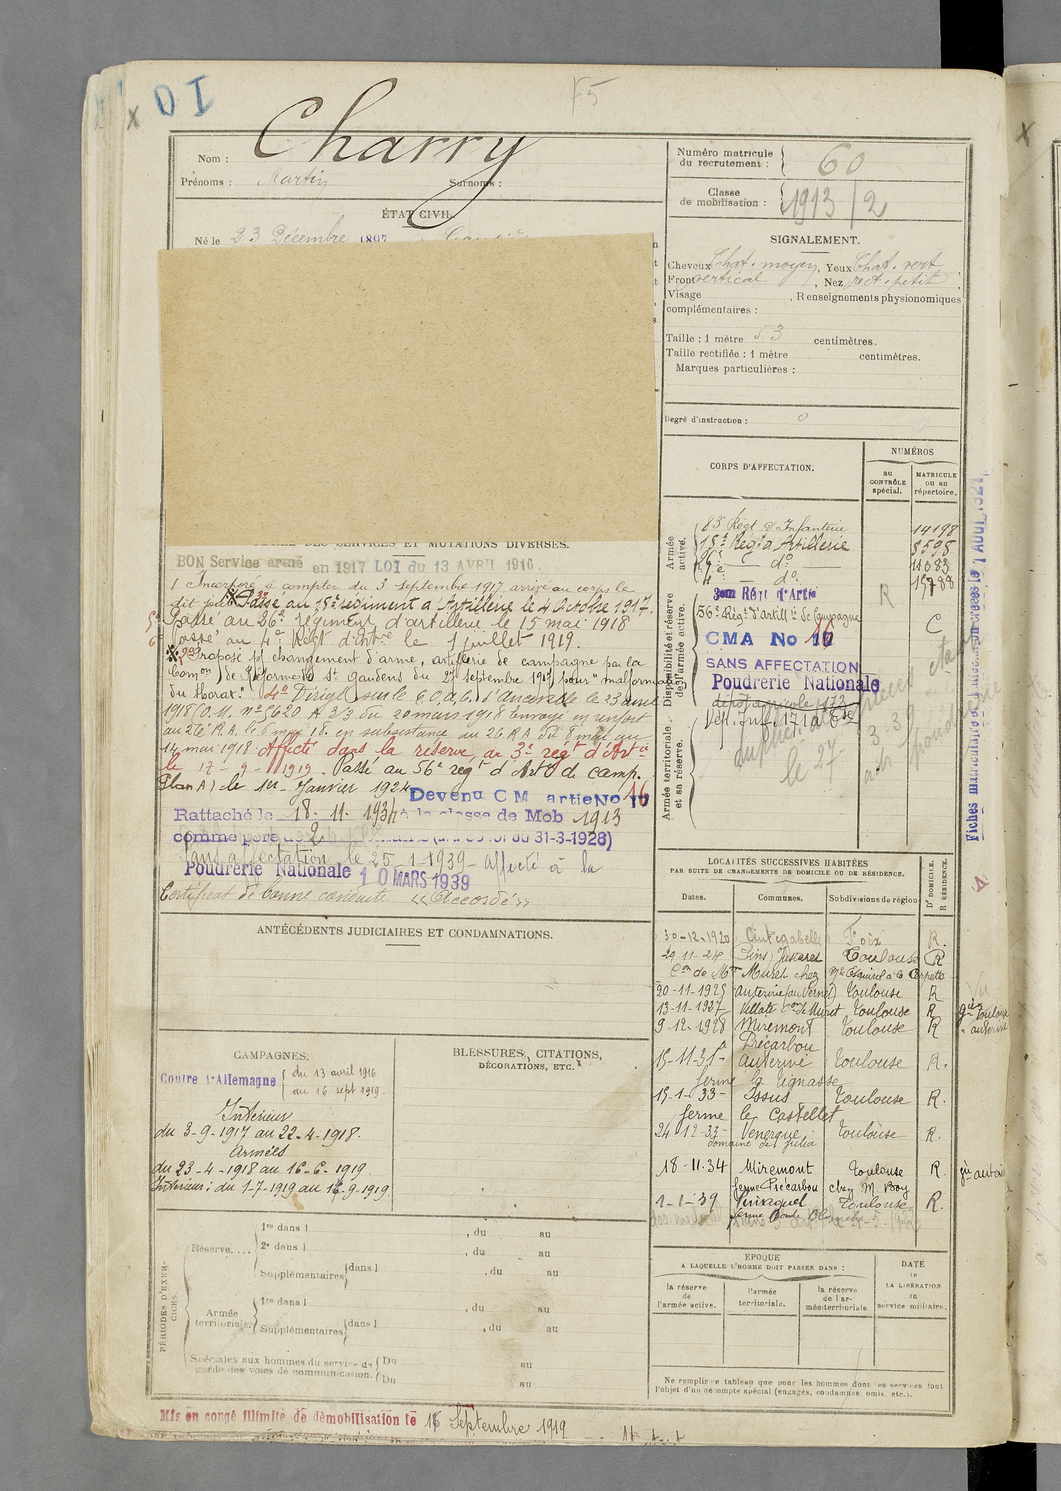 10
F5
Nom : Charry
Prénoms : Martin Surnoms :
ÉTAT CIVIL.
Né le 23 Décembre 1897
DES SERVICES ET MUTATIONS DIVERSES.
BON Service armé en 1917 LOI du 13 AVRIL 1916.
1 Incorporé à compter du 3 septembre 1917 arrivé au corps le
dit jour. Passé au 15e régiment d'Artillerie le 4 Octobre 1917.
Passé au 26e régiment d'artillerie le 15 mai 1918
Passé au 4e Régt d'Artrie le 1 juillet 1919.
Proposé pr changement d'arme, artillerie de campagne par la
Comon de Réforme de St gaudens du 27 septembre 1917 pour "malformation
du thorax". 4° Dirigé sur le C.O.A.C. d'Ancenis le 23 avril
1918 (O.M. n° 5620 A 3/3 du 20 mars 1918 Envoyé en renfort
au 26e R.A. le 6 mai 18. en subsistance au 26 R.A. du 8 mai au
14 mai 1918 Affecté dans la réserve, au 3e régt d'Artie
le 17-9-1919. Passé au 56e régt d'Artie de camp.
Plan A) le 1er Janvier 1924 Devenu C M artie No 16
Rattaché le 18.11.1934 à la classe de Mob 1913
comme père de 2 du 31-3-1928)
Sans affectation le 25-1-1939 - affecté à la
Poudrerie Nationale 10 MARS 1939
Certificat de bonne conduite « Accordé »
ANTÉCÉDENTS JUDICIAIRES ET CONDAMNATIONS.
CAMPAGNES.
Contre l'Allemagne du 13 avril 1916
au 16 sept 1919.
Intérieur
du 3-9-1917 au 22-4-1918.
Armées
du 23-4-1918 au 16-6-1919.
Intérieur : du 1-7-1919 au 16-9-1919
BLESSURES, CITATIONS,
DÉCORATIONS, ETC.
PÉRIODES D'EXERCICES.
Réserve.... 1re dans l , du au
2e dans l , du au
Supplémentaires dans l , du au
Armée territoriale. 1re dans l , du au
Supplémentaires dans l , du au
Spéciales aux hommes du service de Du au
garde des voies de communication. Du au
Mis en congé illimité de démobilisation le 16 Septembre 1919
Numéro matricule
du recrutement : 60
Classe
de mobilisation : 1913/2
SIGNALEMENT.
Cheveux Chat. moyen, Yeux Chat. vert
Front vertical, Nez rect. petit
Visage , Renseignements physionomiques
complémentaires :
Taille : 1 mètre 53 centimètres.
Taille rectifiée : 1 mètre centimètres.
Marques particulières :
Degré d'instruction : 0
CORPS D'AFFECTATION.
NUMÉROS
AU CONTRÔLE spécial.
MATRICULE OU AU répertoire.
Armée active.
83 Régt d'Infanterie 14198
15e Regt d'Artillerie 8598
26e — do — 11083
4e — do. 15788
Disponibilité et réserve de l'armée active.
3em Régt d'Artie R
56e Régt d'Artillie de Campagne C
CMA No 16
SANS AFFECTATION
Poudrerie Nationale
dépôt agricole 173
Dép. Inf. 171 a 8se
Armée territoriale et sa réserve.
le 27-
LOCALITÉS SUCCESSIVES HABITÉES
PAR SUITE DE CHANGEMENTS DE DOMICILE OU DE RÉSIDENCE.
Dates. Communes. Subdivisions de région D' DOMICILE. R RÉSIDENCE.
30-12-1920 Cintegabelle Foix R.
29-11-24 Pins Justaret Toulouse R
Con de Mon Muret chez Mr Esquirol à la Cépette
20-11-1925 Auterive (au Vernet) Toulouse R
13-11-1927 Villate Con de Muret Toulouse R
9-12-1928 Miremont Toulouse R
Précarbou
15-11-31 Auterive Toulouse R.
ferme la Vignasse
15-1-33- Issus Toulouse R.
ferme le Castellet
24-12-33- Venerque Toulouse R.
domaine de Julia
18-11-34 Miremont Toulouse R.
ferme Précarbou chez M. Boy
1-1-39 Pinsaguel Toulouse R.
ÉPOQUE
A LAQUELLE L'HOMME DOIT PASSER DANS :
la réserve de l'armée active.
l'armée territoriale.
la réserve de l'armée territoriale.
DATE
de
LA LIBÉRATION
du
service militaire.
Ne remplir ce tableau que pour les hommes dont les services font
l'objet d'un décompte spécial (engagés, condamnés, omis, etc.).